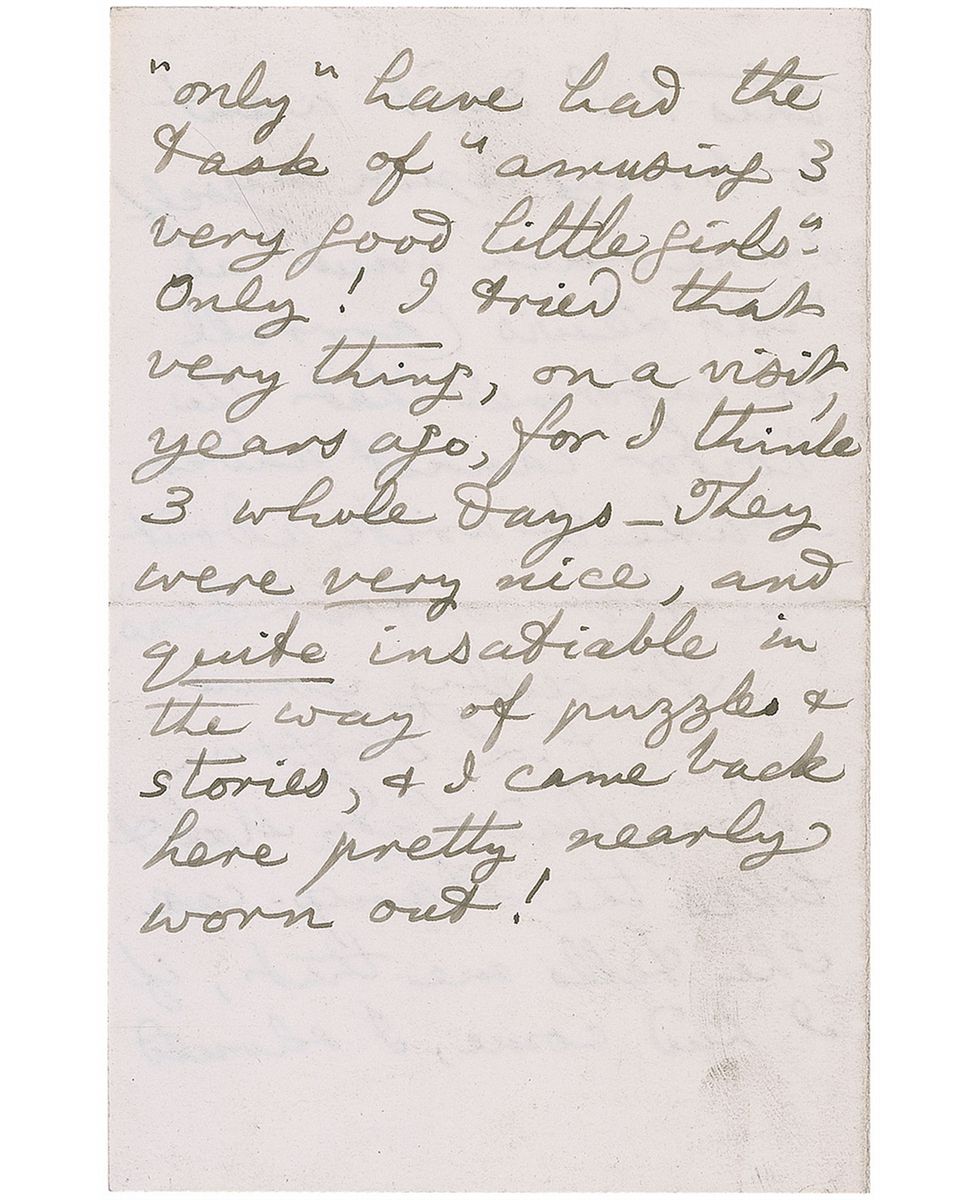 "only" have had the
task of "amusing 3
very good little girls".
Only! I tried that
very thing, on a visit,
years ago, for I think
3 whole days — They
were very nice, and
quite insatiable in
the way of puzzles &
stories, & I came back
here pretty nearly
worn out!